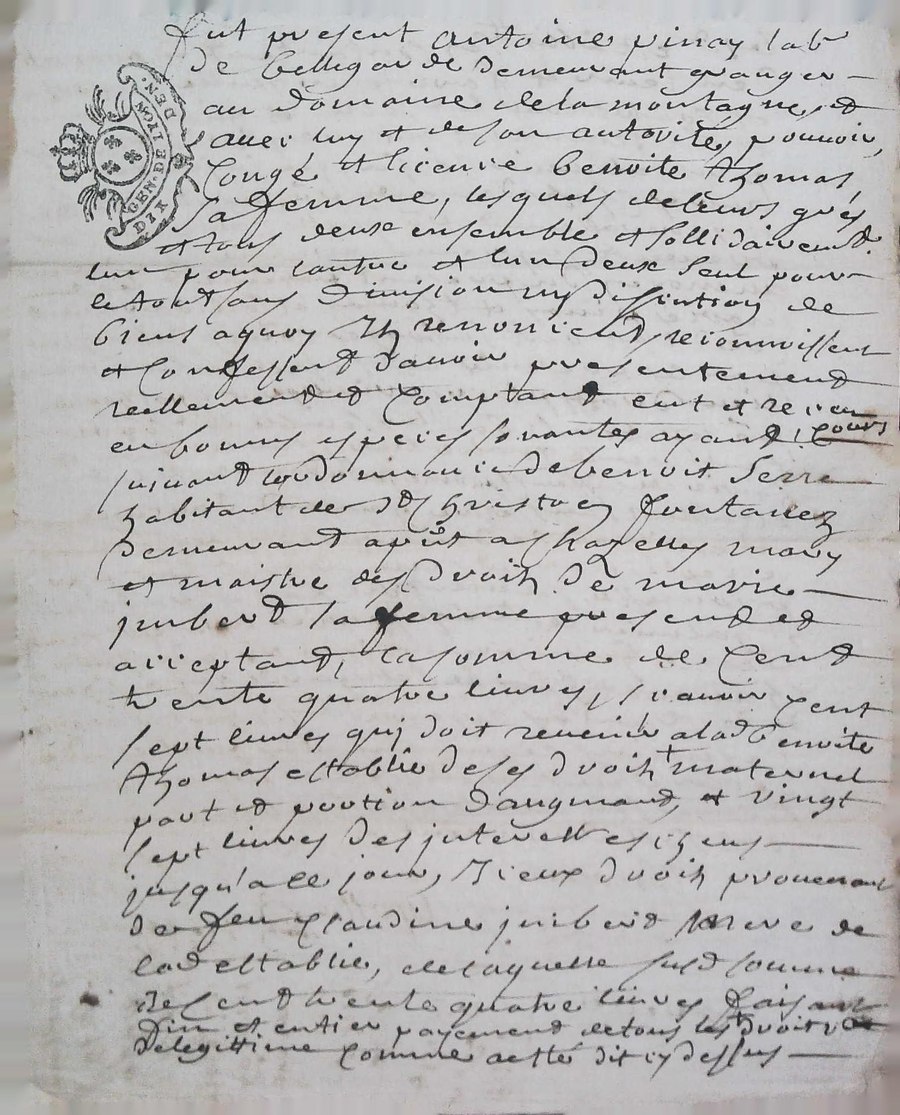 GEN. DE LYON
DIX DEN.
fut present antoine pinay lab^r
de bellegarde demeurant granger
au domaine de la montagne, et
avec luy et de son autorité, pouvoir,
Congé et licence benoite thomas
sa femme, lesquels de leurs grés
et tous deux ensemble et sollidairement
lun pour lautre et lun deux seul pour
le tout sans division ny discution de
biens a quoy Ils renoncent, reconnoissent
et Confessent d'avoir presentement
reellement et Comptant eut et receu
en bonnes especes sonantes ayant Cours
suivant lordonnance de benoit serre
habitant de St Christo en fontanez
demeurant a chazelles mary
et maistre des droits de marie
jmbert sa femme present et
acceptant, la somme de Cent
trente quatre livres, scavoir Cent
sept livres quj doit revenir a lad benoite
thomas establie de ses droits + maternel
part et portion daugment, et vingt
sept livres des jnterests echeus
jusqu'a ce jour, Iceux droits provenant
de feu Claudine jmbert mere de
lad establie, de laquelle susd somme
de Cent trente quatre livres faisant
fin et entier payement de tous les droits
de legittime Comme a esté dit cy dessus